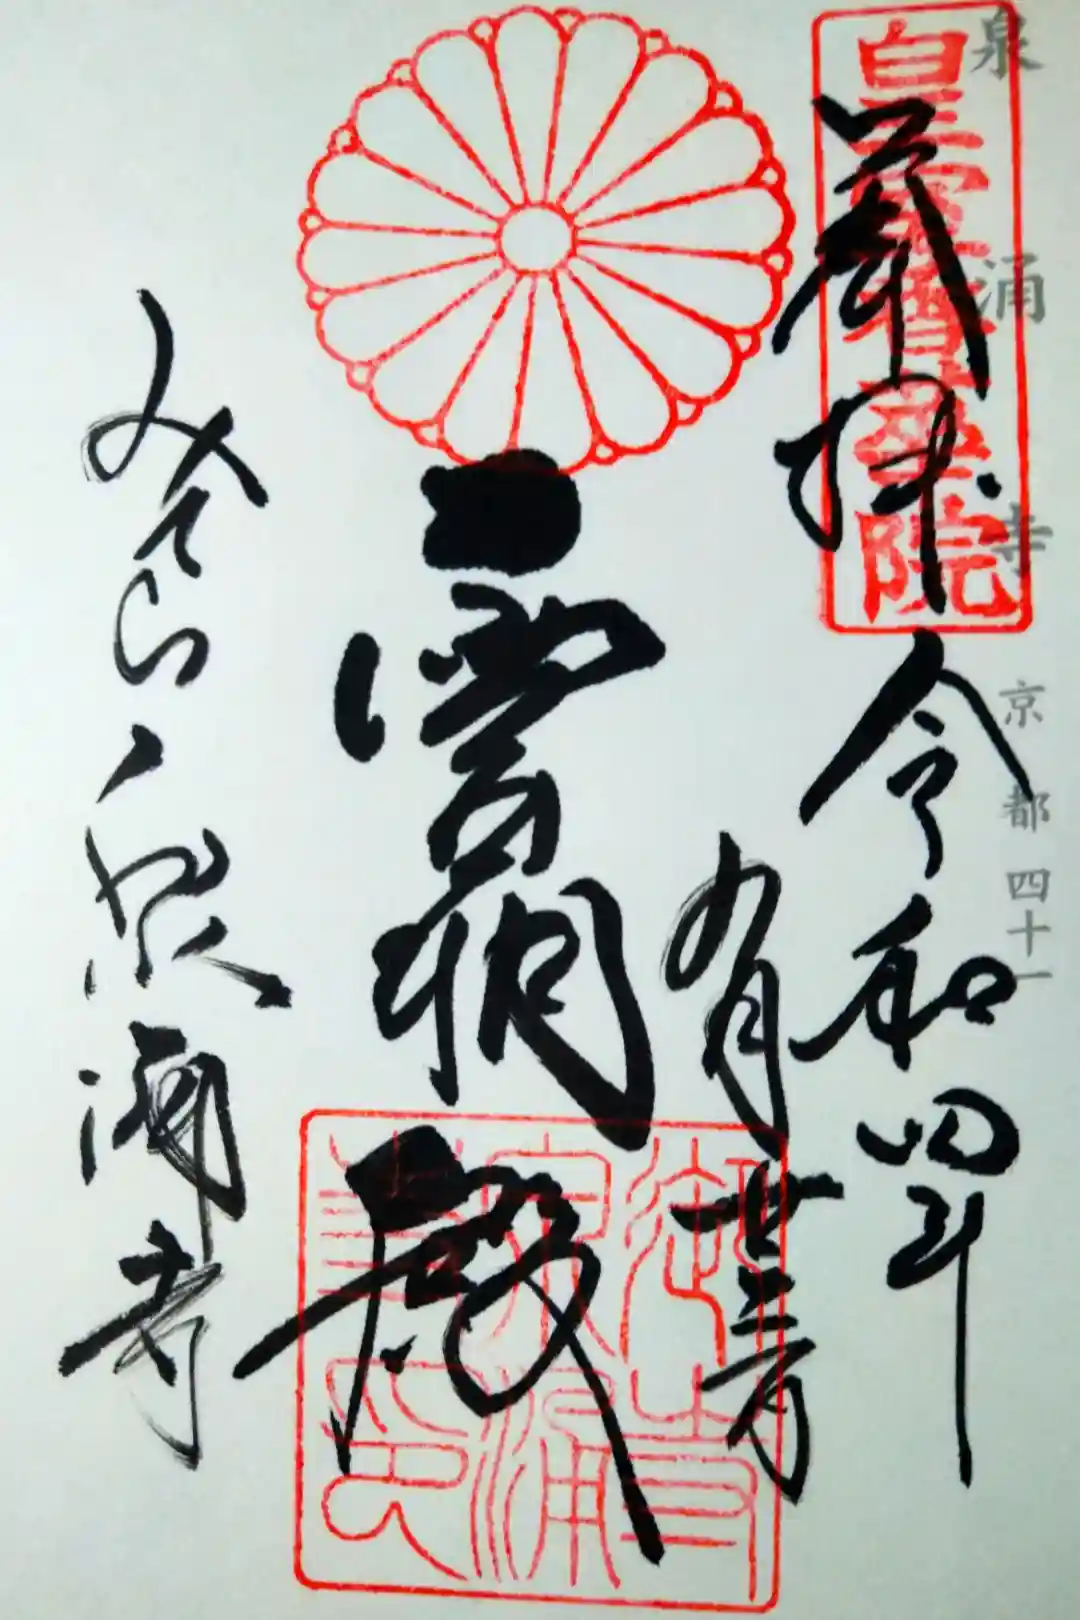 泉涌寺 京都 四十一
皇室香華院
奉拝 令和四年
霊明殿
みてら 泉涌寺
御寺泉涌寺印